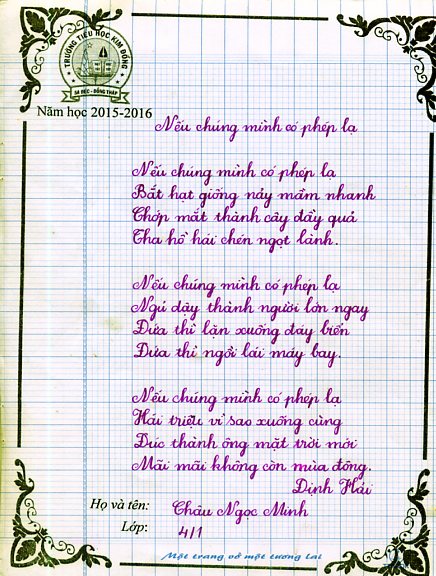 TRƯỜNG TIỂU HỌC KIM ĐỒNG
SA ĐÉC - ĐỒNG THÁP
Năm học 2015-2016
Nếu chúng mình có phép lạ
Nếu chúng mình có phép lạ
Bắt hạt giống nảy mầm nhanh
Chớp mắt thành cây đầy quả
Tha hồ hái chén ngọt lành.
Nếu chúng mình có phép lạ
Ngủ dậy thành người lớn ngay
Đứa thì lặn xuống đáy biển
Đứa thì ngồi lái máy bay.
Nếu chúng mình có phép lạ
Hái triệu vì sao xuống cùng
Đúc thành ông mặt trời mới
Mãi mãi không còn mùa đông.
Định Hải
Họ và tên: Châu Ngọc Minh
Lớp: 4/1
Một trang vở một tương lai